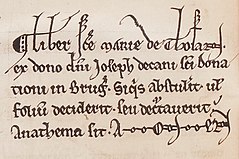 Liber sce marie de
ex dono dni Joseph decani sci dona
tiani in Brug. Siqis abstulit ul
folium deciderit. seu detruncauerit,
Anathema sit. A